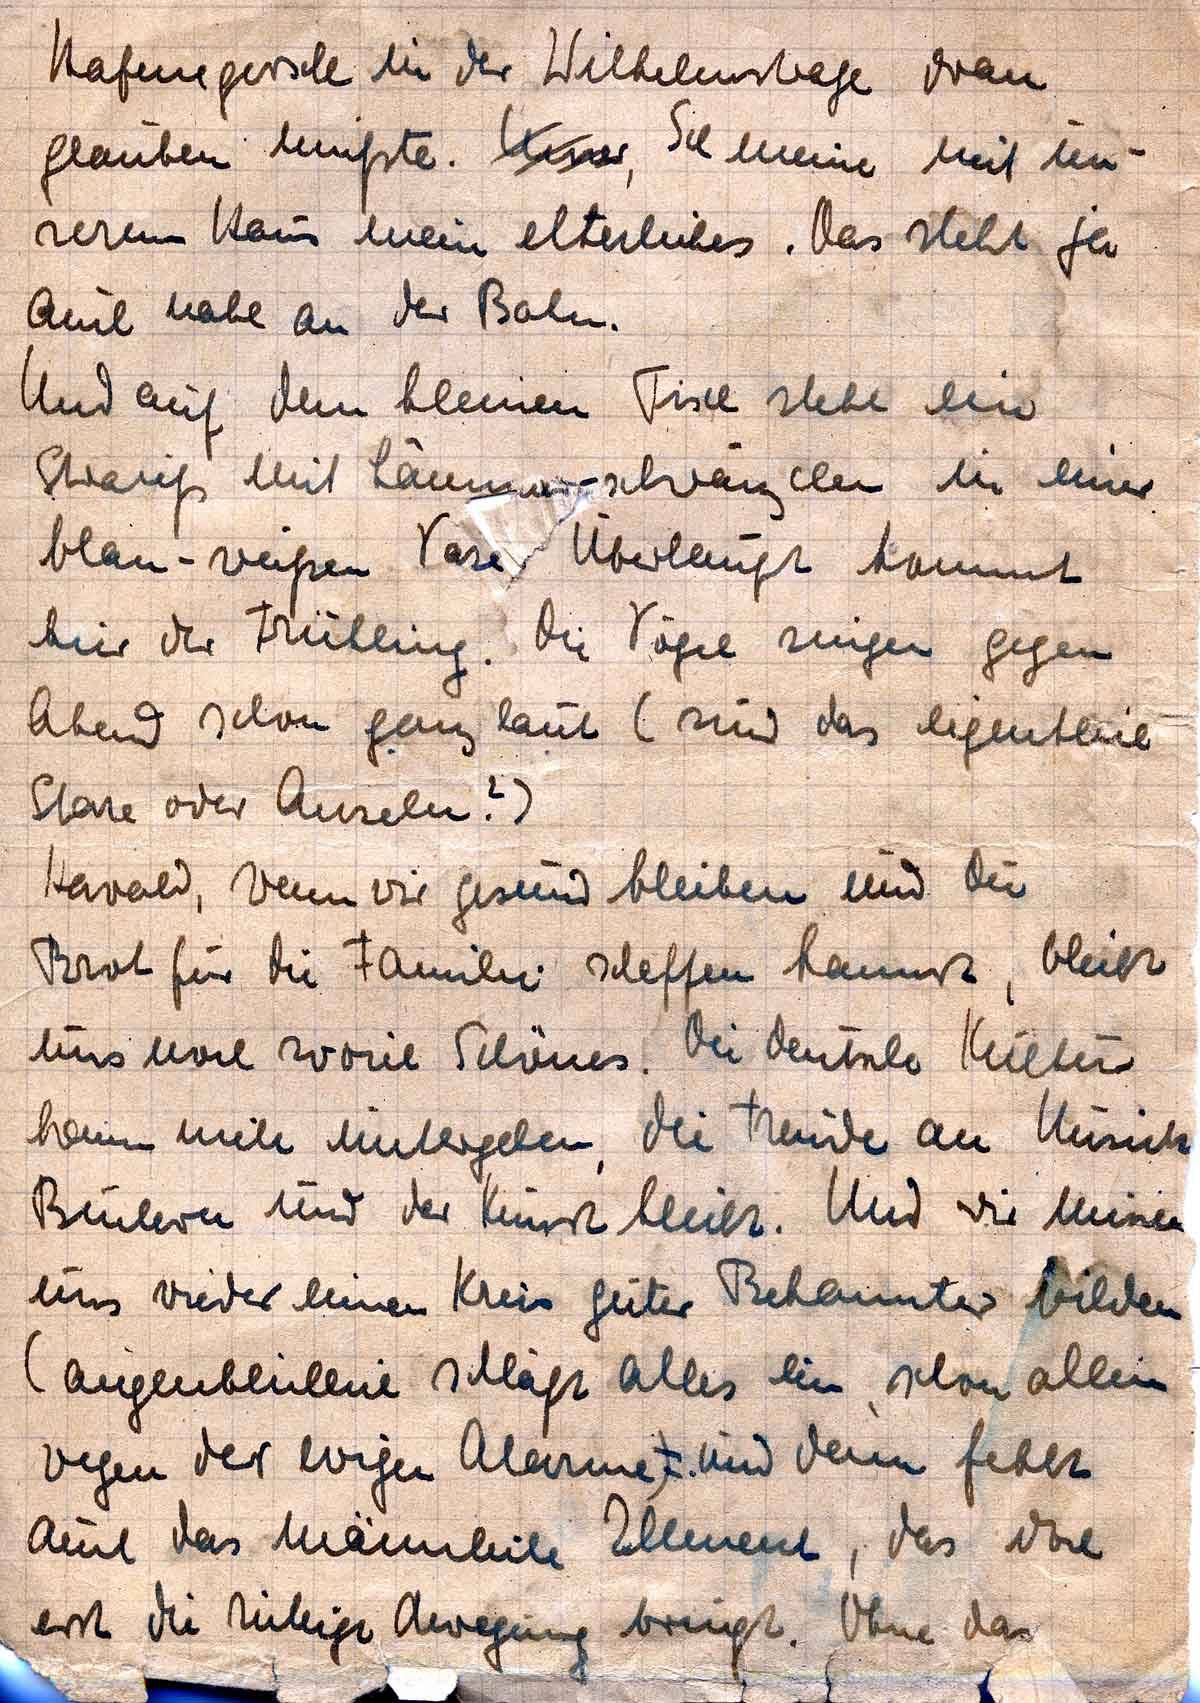 Hafengersch in der Wilhelmstrage dran
glauben mußte. Unser, Ich meine mit un-
serem Haus mein elterliches. Das steht ja
auch nahe an der Bahn.
Und auf dem kleinen Tisch steht ein
Strauß mit Lämmer-schwänzchen in einer
blau-weißen Vase. Überhaupt kommt
hier der Frühling. Die Vögel singen gegen
Abend schon ganz laut (sind das eigentlich
Stare oder Amseln?)
Harald, wenn wir gesund bleiben und Du
Brot für die Familie schaffen kannst, bleibt
uns noch soviel Schönes. Die deutsche Kultur
kann nicht untergehen, die Freude an Musik
Büchern und der Kunst bleibt. Und wir müssen
uns wieder einen Kreis guter Bekannter bilden
(augenblicklich schläft alles ein, schon allein
wegen der ewigen Alarme). Und dann fehlt
auch das männliche Element, das doch
erst die richtige Anregung bringt. Ohne das